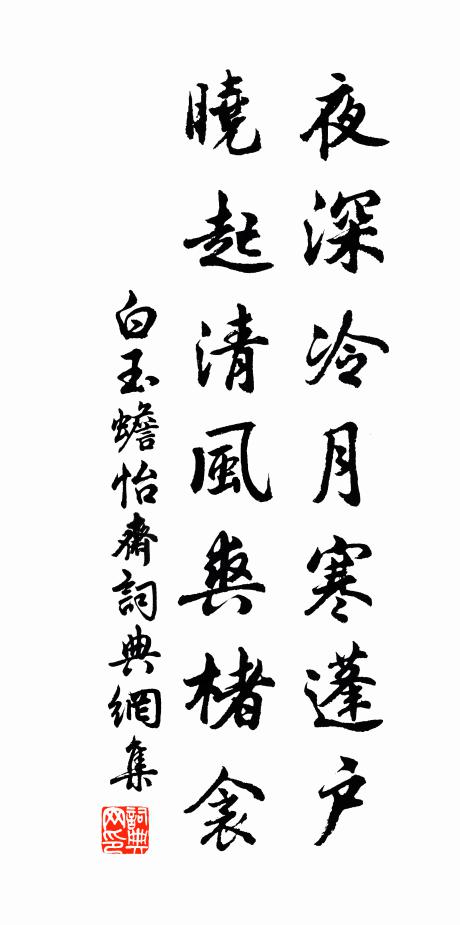 夜深冷月寒蓬戶
曉起清風爽楮衾
白玉蟾怡齋詞典網集
詞典网印